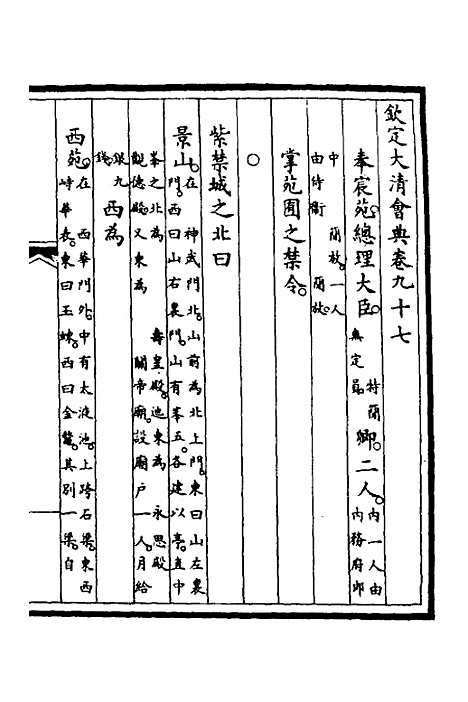 欽定大清會典卷九十七
奉宸苑。總理大臣。特簡無定員。卿。二人。內一人由內務府郎
中 簡放。一人由侍衛 簡放。
掌苑囿之禁令。
○
紫禁城之北曰
景山。在 神武門北。山前為北上門。東曰山左裏門。西曰山右裏門。山有峯五。各建以亭。直中
峯之北為 壽皇殿。迤東為 永思殿觀德殿。又東為 關帝廟。設廟戶一人。月給
銀九錢。西為
西苑。在 西華門外。中有太液池。上跨石梁。東西峙華表。東曰玉蝀。西曰金鼇。其別一梁。自